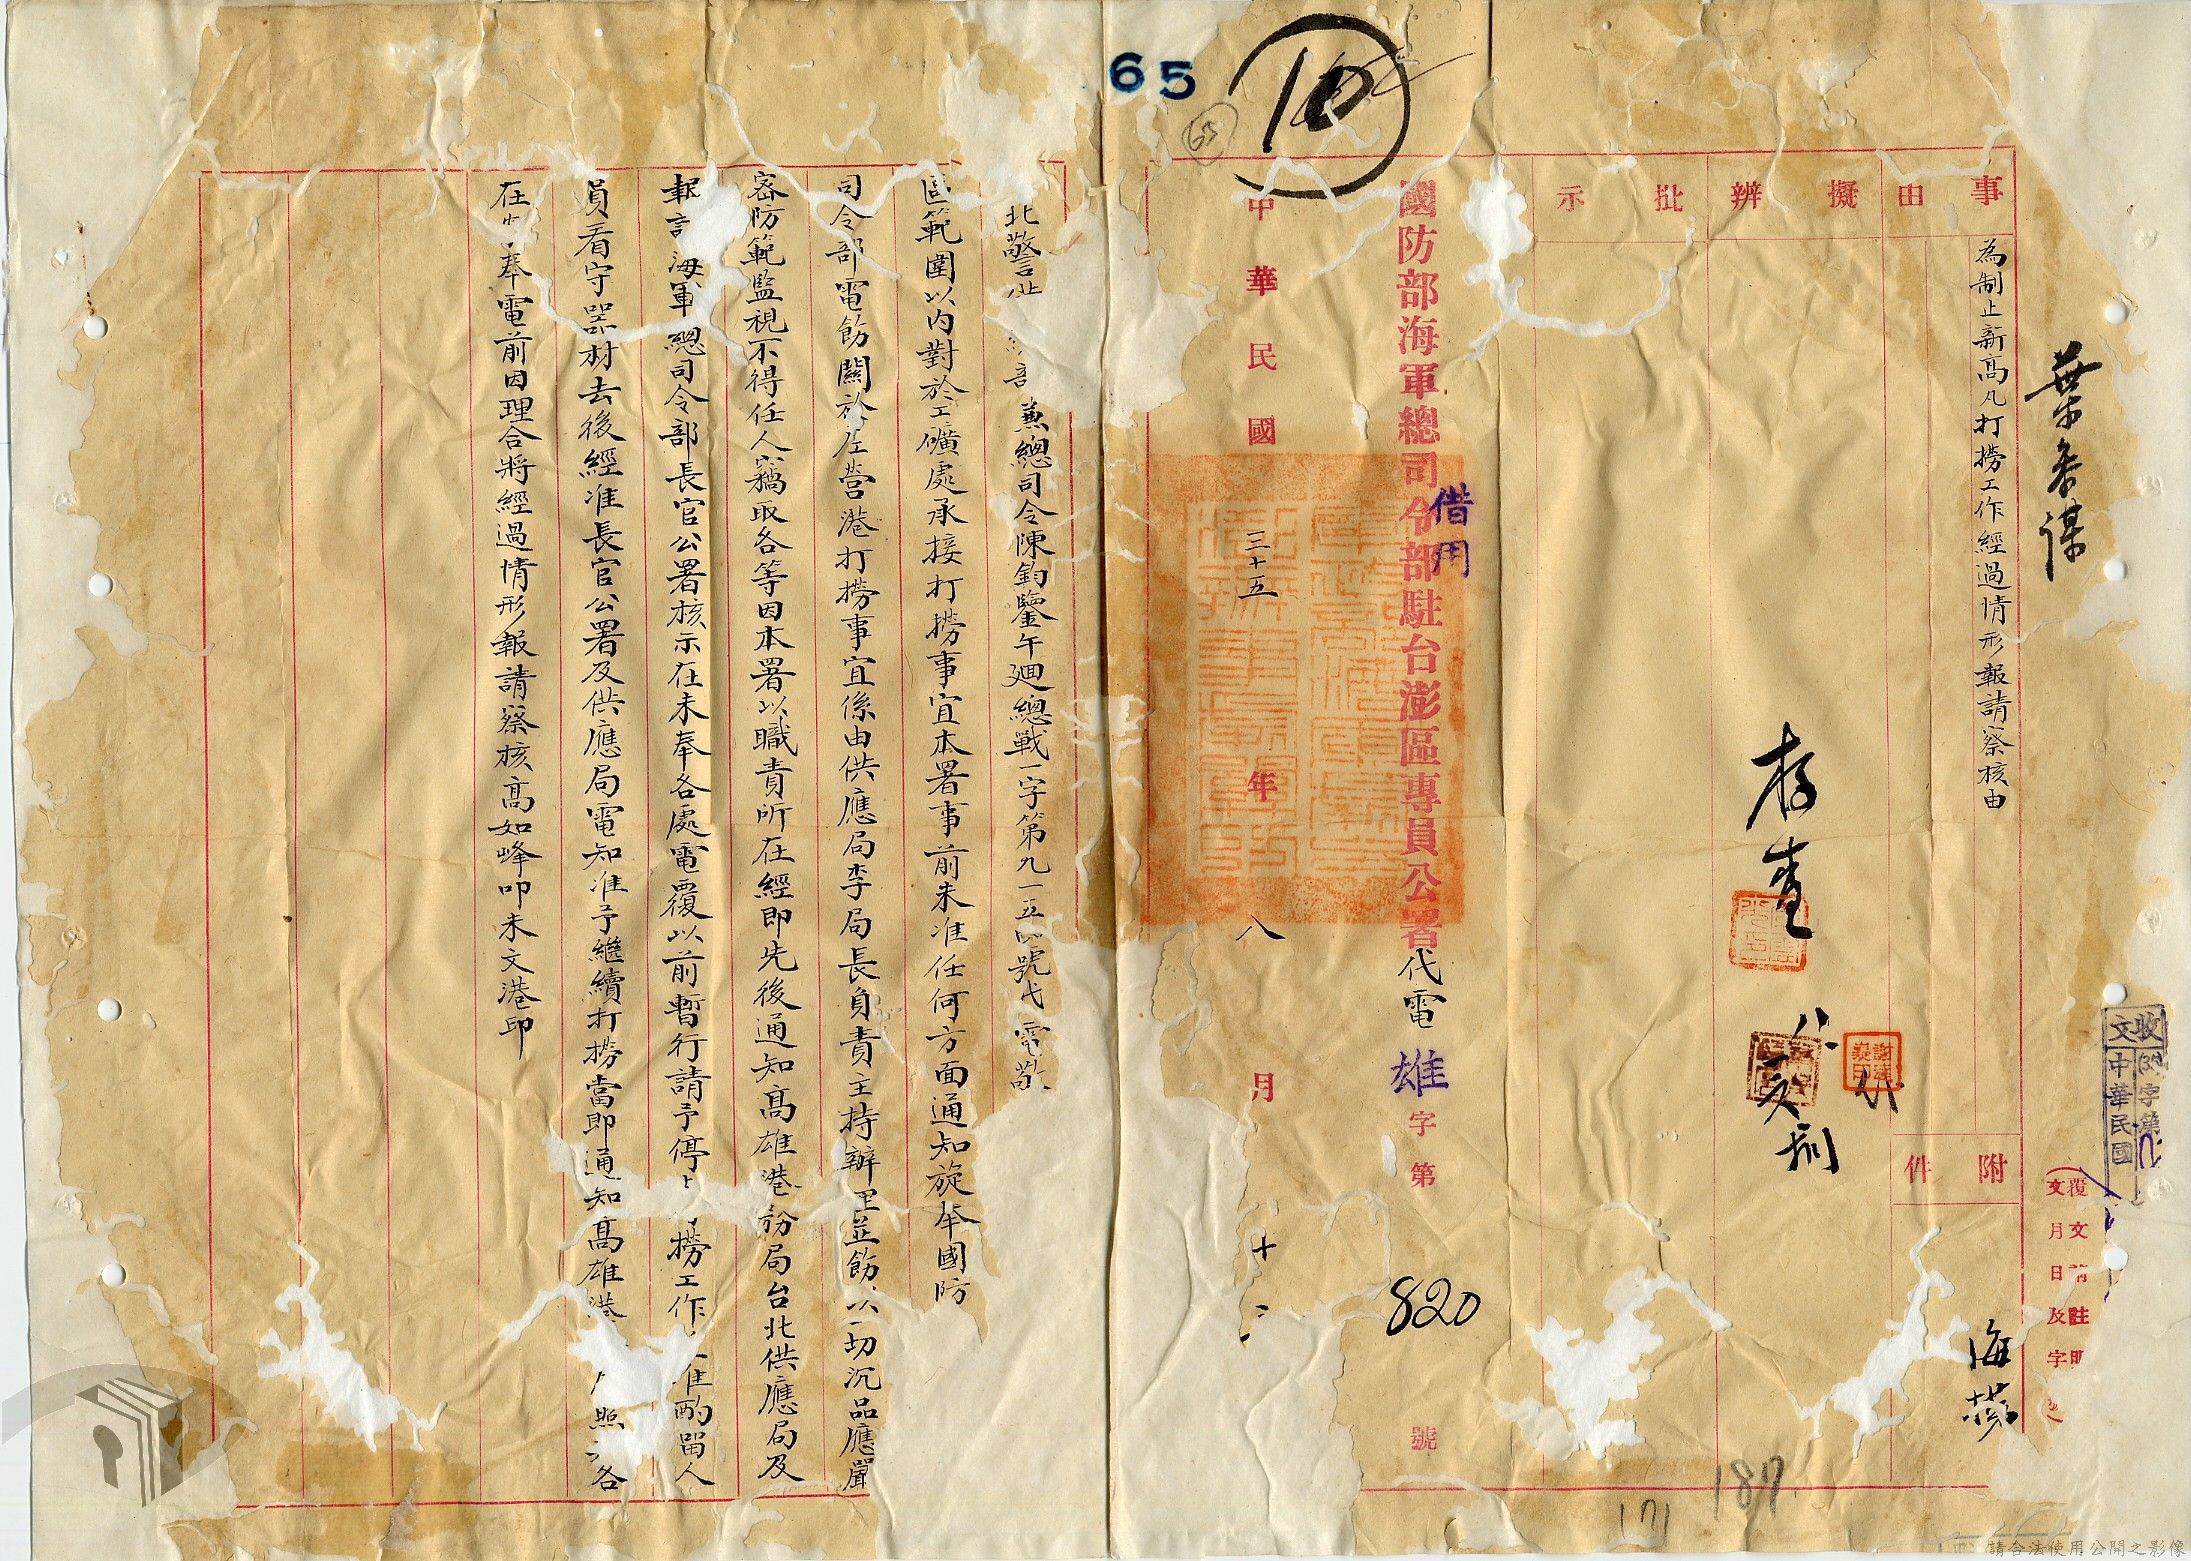 65
65
10
葉參謀
事由
擬辦
批示
為制止新高凡打撈工作經過情形報請察核由
附件
海楊
存查
收文
字第
中華民國
國防部海軍總司令部駐台澎區專員公署代電
借用
雄字第820號
中華民國三十五年八月十二
北警 兼總司令陳鈞鑒午迴總戰一字第九一五四號代電敬
區範圍以內對於工礦處承接打撈事宜本署事前未准任何方面通知旋奉國防
司令部電飭關於左營港打撈事宜係由供應局李局長負責主持辦理並飭以一切沉品應嚴
密防範監視不得任人竊取各等因本署以職責所在經即先後通知高雄港務局台北供應局及
報請海軍總司令部長官公署核示在未奉各處電覆以前暫行請予停止 撈工作 准酌留人
員看守器材去後經准長官公署及供應局電知准予繼續打撈當即通知高雄港 照 各
在 奉電前因理合將經過情形報請察核高如峰叩未文港印
187
171
請合法使用公開之影像